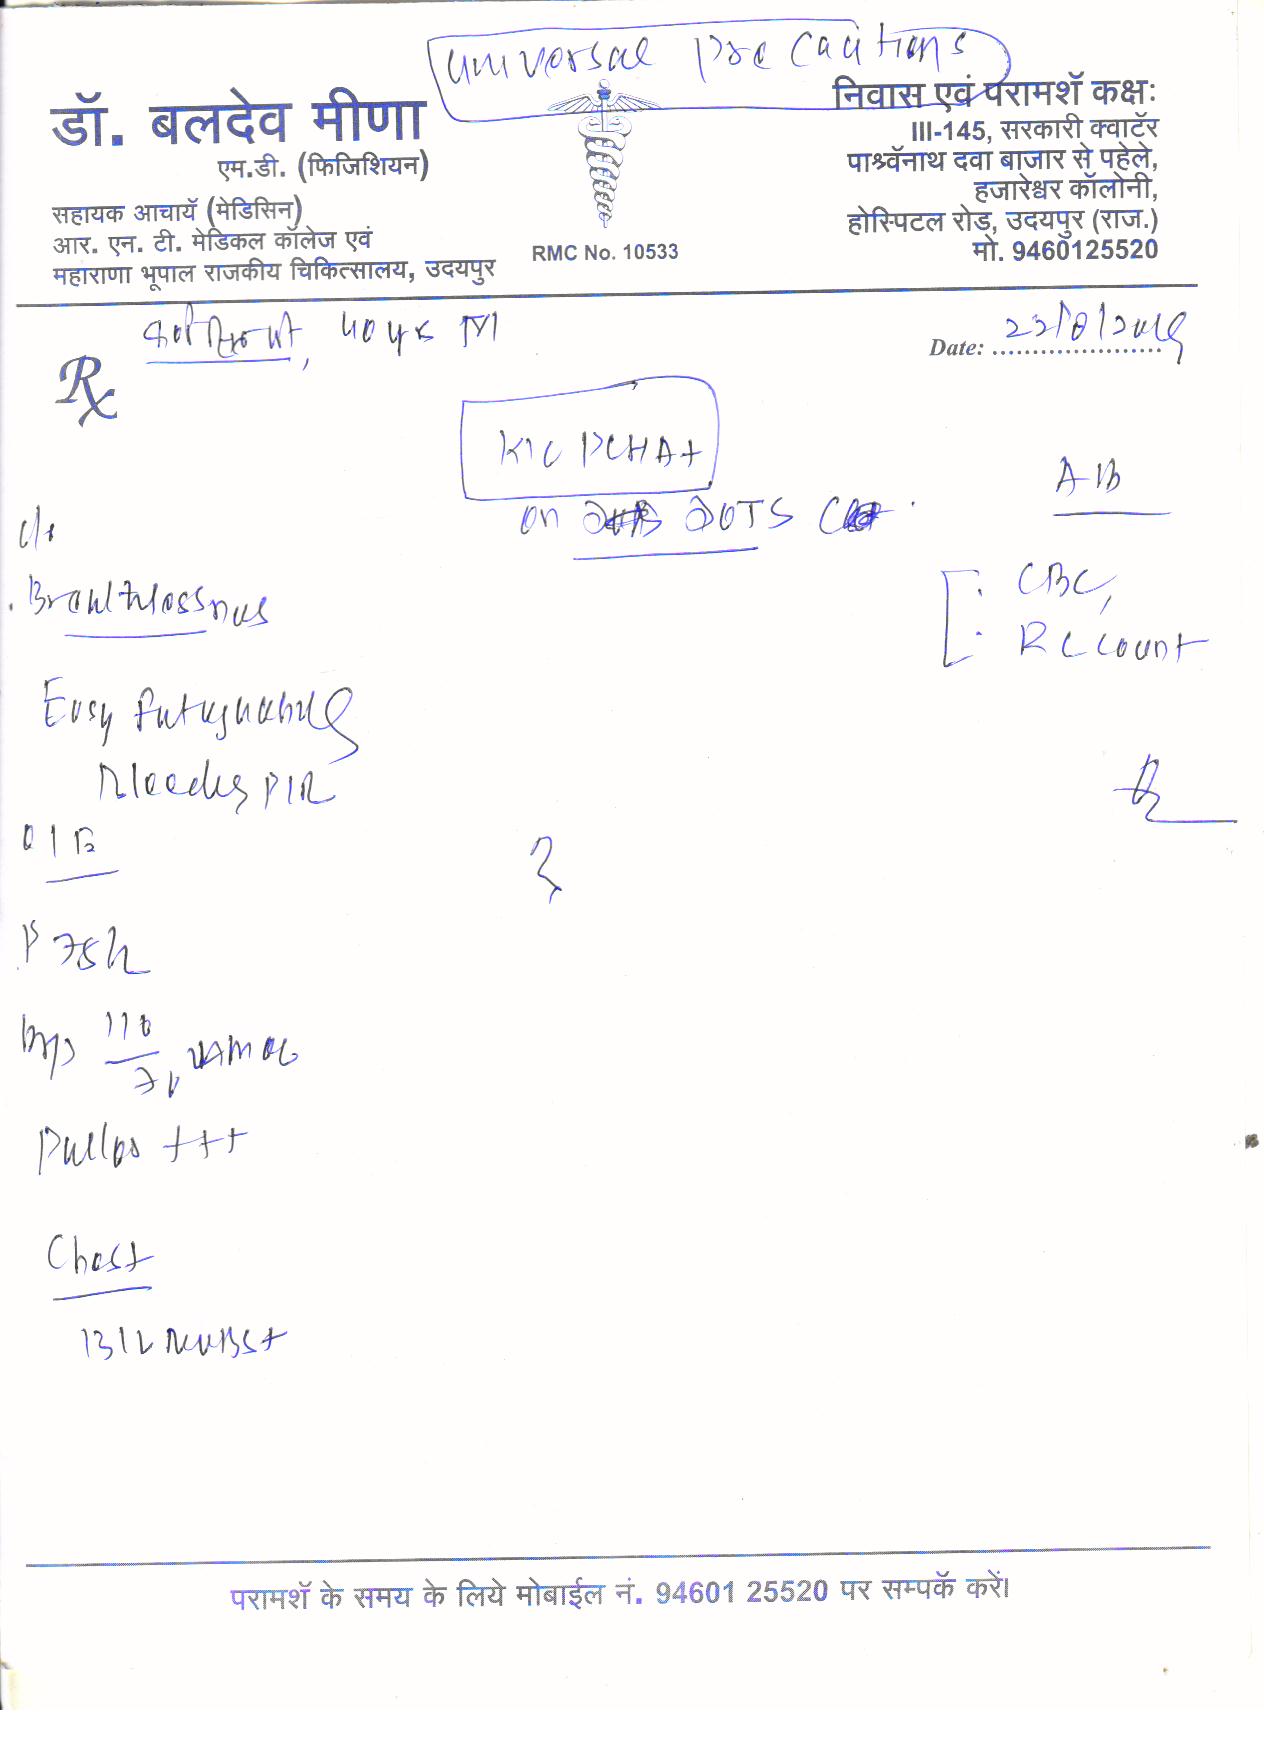 Universal Precautions
डॉ. बलदेव मीणा
एम.डी. (फिजिशियन)
सहायक आचार्य (मेडिसिन)
आर. एन. टी. मेडिकल कॉलेज एवं
महाराणा भूपाल राजकीय चिकित्सालय, उदयपुर
RMC No. 10533
निवास एवं परामर्श कक्षः
III-145, सरकारी क्वार्टर
पार्श्वनाथ दवा बाजार से पहेले,
हजारेश्वर कॉलोनी,
होस्पिटल रोड, उदयपुर (राज.)
मो. 9460125520
40 yrs M
Date:
Rx
K/C PLHA+
on DOTS
A/B
C/o
Breathlessness
CBC,
RC Count
Easy fatiguability
O/E
P 78/m
Bp 110/70
Pallor +++
Chest
B/L NVBS+
परामर्श के समय के लिये मोबाईल नं. 94601 25520 पर सम्पर्क करें।